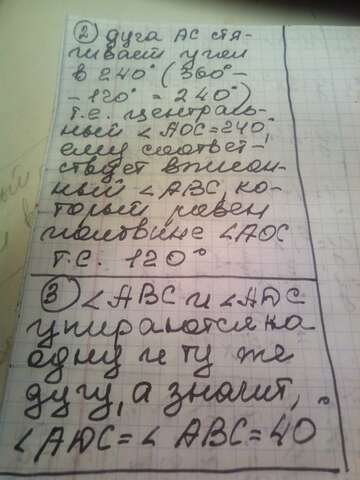 ② дуга АС стя-
гивает угол
в 240° (360°-
- 120° = 240°)
т.е. централь-
ный ∠АОС=240,
ему соответ-
ствует вписан-
ный ∠АВС, ко-
торый равен
половине ∠АОС
т.е. 120°
③ ∠АВС и ∠АDС
упираются на
одну и ту же
дугу, а значит,
∠АDС=∠АВС=40°